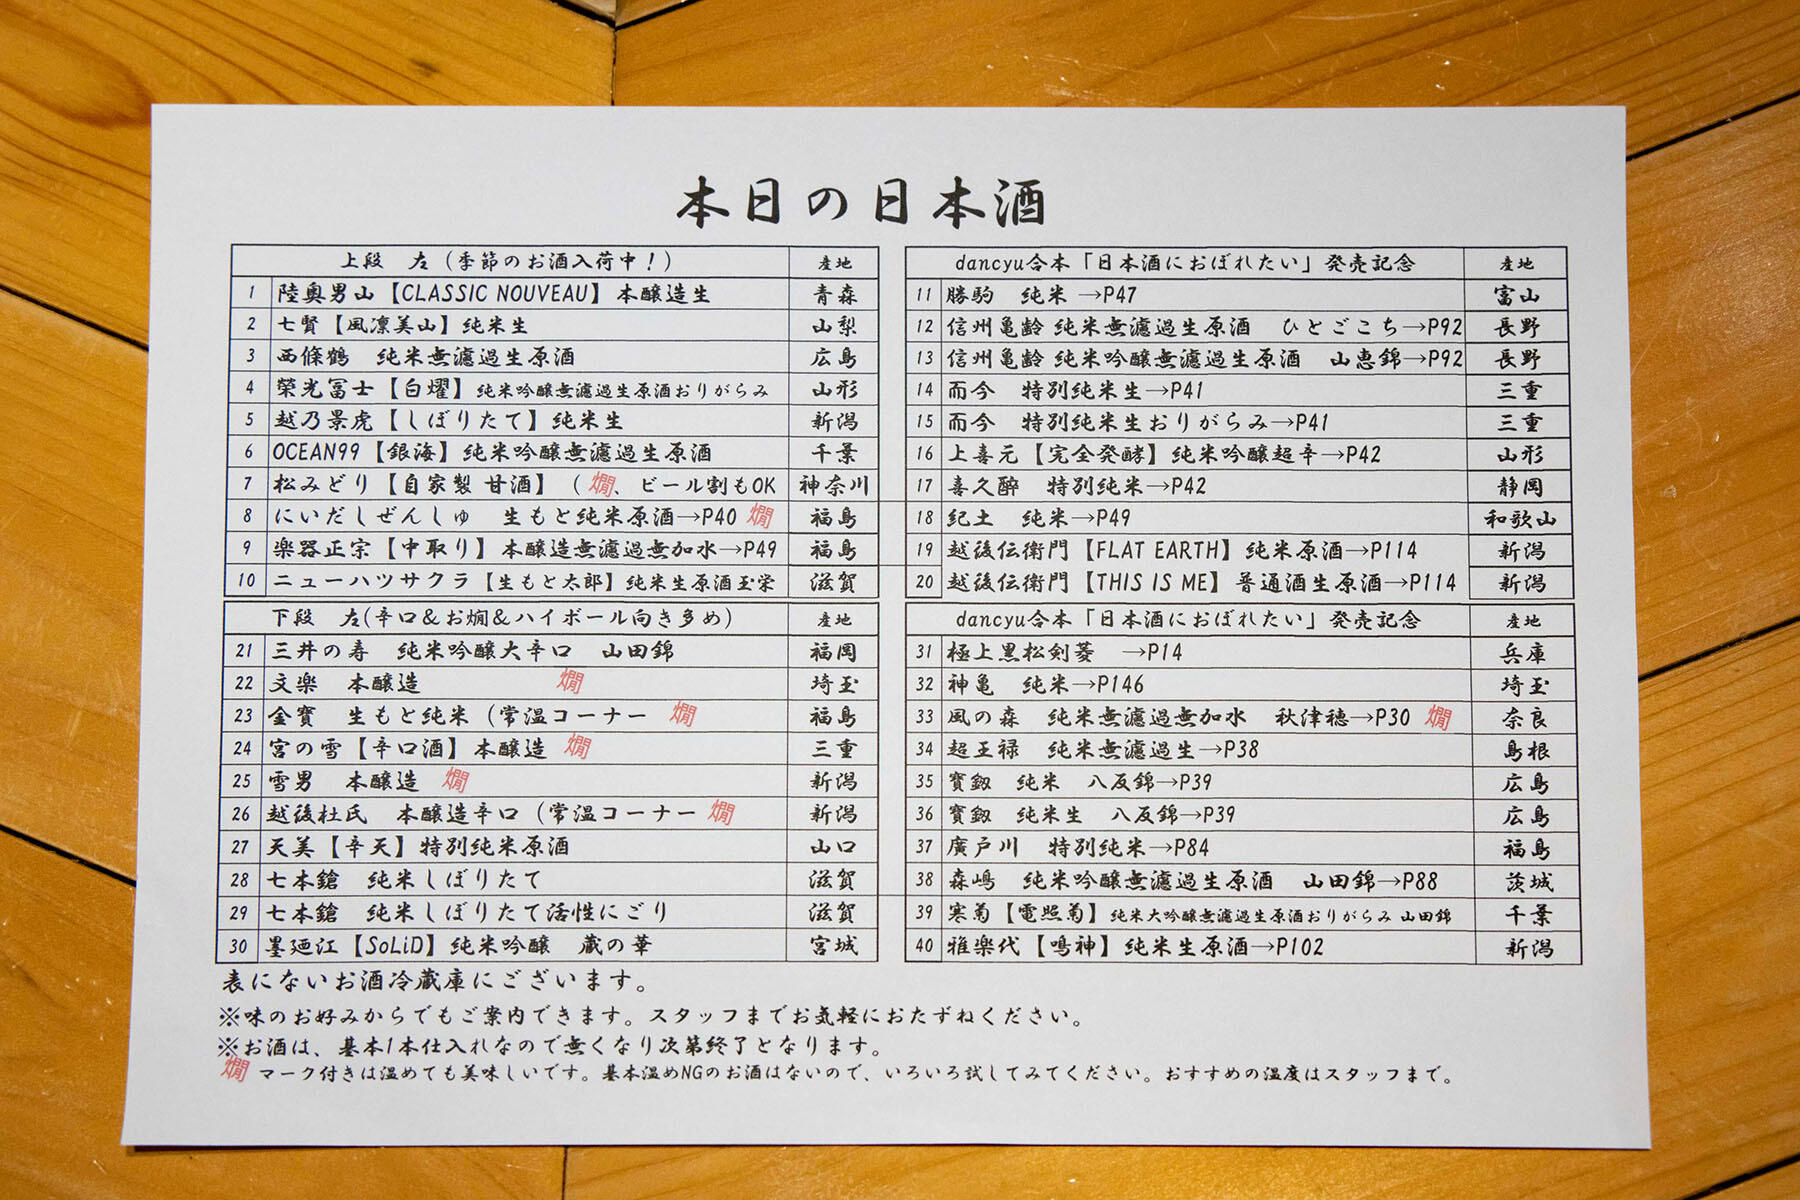 本日の日本酒
上段 左（季節のお酒入荷中！） 産地
1 陸奥男山【CLASSIC NOUVEAU】本醸造生 青森
2 七賢【風凛美山】純米生 山梨
3 西條鶴 純米無濾過生原酒 広島
4 榮光冨士【白燿】純米吟醸無濾過生原酒おりがらみ 山形
5 越乃景虎【しぼりたて】純米生 新潟
6 OCEAN99【銀海】純米吟醸無濾過生原酒 千葉
7 松みどり【自家製 甘酒】（燗、ビール割もOK 神奈川
8 にいだしぜんしゅ 生もと純米原酒→P40 燗 福島
9 楽器正宗【中取り】本醸造無濾過無加水→P49 福島
10 ニューハツサクラ【生もと太郎】純米生原酒玉栄 滋賀
dancyu合本「日本酒におぼれたい」発売記念 産地
11 勝駒 純米→P47 富山
12 信州亀齢 純米無濾過生原酒 ひとごこち→P92 長野
13 信州亀齢 純米吟醸無濾過生原酒 山恵錦→P92 長野
14 而今 特別純米生→P41 三重
15 而今 特別純米生おりがらみ→P41 三重
16 上喜元【完全発酵】純米吟醸超辛→P42 山形
17 喜久醉 特別純米→P42 静岡
18 紀土 純米→P49 和歌山
19 越後伝衛門【FLAT EARTH】純米原酒→P114 新潟
20 越後伝衛門【THIS IS ME】普通酒生原酒→P114 新潟
下段 左(辛口＆お燗＆ハイボール向き多め) 産地
21 三井の寿 純米吟醸大辛口 山田錦 福岡
22 文楽 本醸造 燗 埼玉
23 金寶 生もと純米（常温コーナー 燗 福島
24 宮の雪【辛口酒】本醸造 燗 三重
25 雪男 本醸造 燗 新潟
26 越後杜氏 本醸造辛口（常温コーナー 燗 新潟
27 天美【辛天】特別純米原酒 山口
28 七本鎗 純米しぼりたて 滋賀
29 七本鎗 純米しぼりたて活性にごり 滋賀
30 墨廼江【SoLiD】純米吟醸 蔵の華 宮城
dancyu合本「日本酒におぼれたい」発売記念 産地
31 極上黒松剣菱 →P14 兵庫
32 神亀 純米→P146 埼玉
33 風の森 純米無濾過無加水 秋津穂→P30 燗 奈良
34 超王禄 純米無濾過生→P38 島根
35 寳剱 純米 八反錦→P39 広島
36 寳剱 純米生 八反錦→P39 広島
37 廣戸川 特別純米→P84 福島
38 森嶋 純米吟醸無濾過生原酒 山田錦→P88 茨城
39 寒菊【電照菊】純米大吟醸無濾過生原酒おりがらみ 山田錦 千葉
40 雅楽代【鳴神】純米生原酒→P102 新潟
表にないお酒冷蔵庫にございます。
※味のお好みからでもご案内できます。スタッフまでお気軽におたずねください。
※お酒は、基本1本仕入れなので無くなり次第終了となります。
燗 マーク付きは温めても美味しいです。基本温めNGのお酒はないので、いろいろ試してみてください。おすすめの温度はスタッフまで。